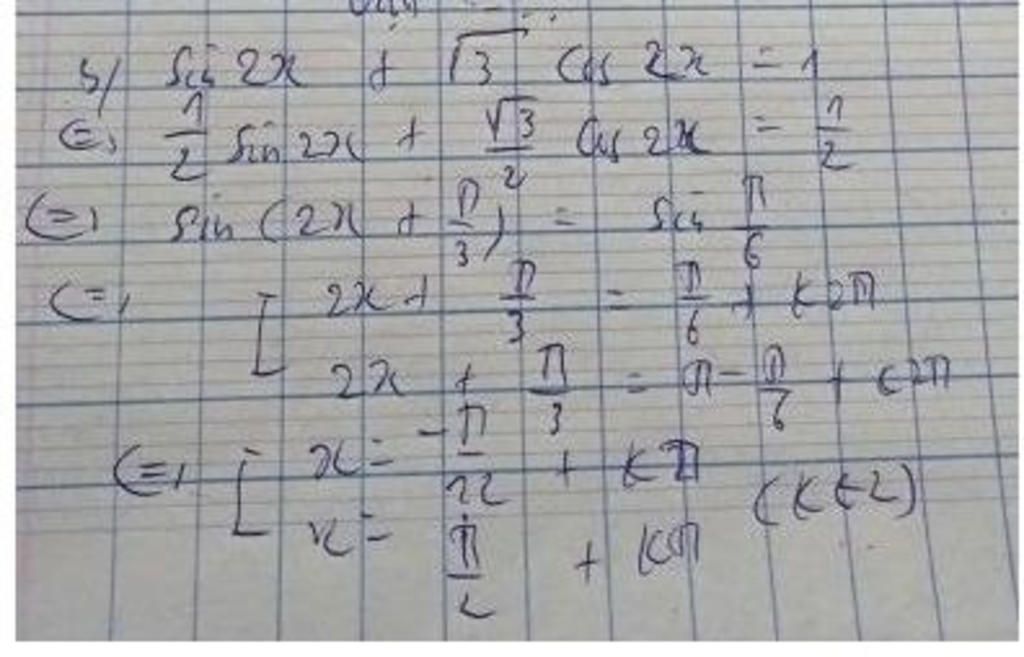 b/ sin 2x + √3 cos 2x = 1
<=> 1/2 sin 2x + √3/2 cos 2x = 1/2
<=> sin (2x + π/3) = sin π/6
<=> [ 2x + π/3 = π/6 + k2π
2x + π/3 = π - π/6 + k2π
<=> [ x = -π/12 + kπ
x = π/4 + kπ (k ∈ Z)